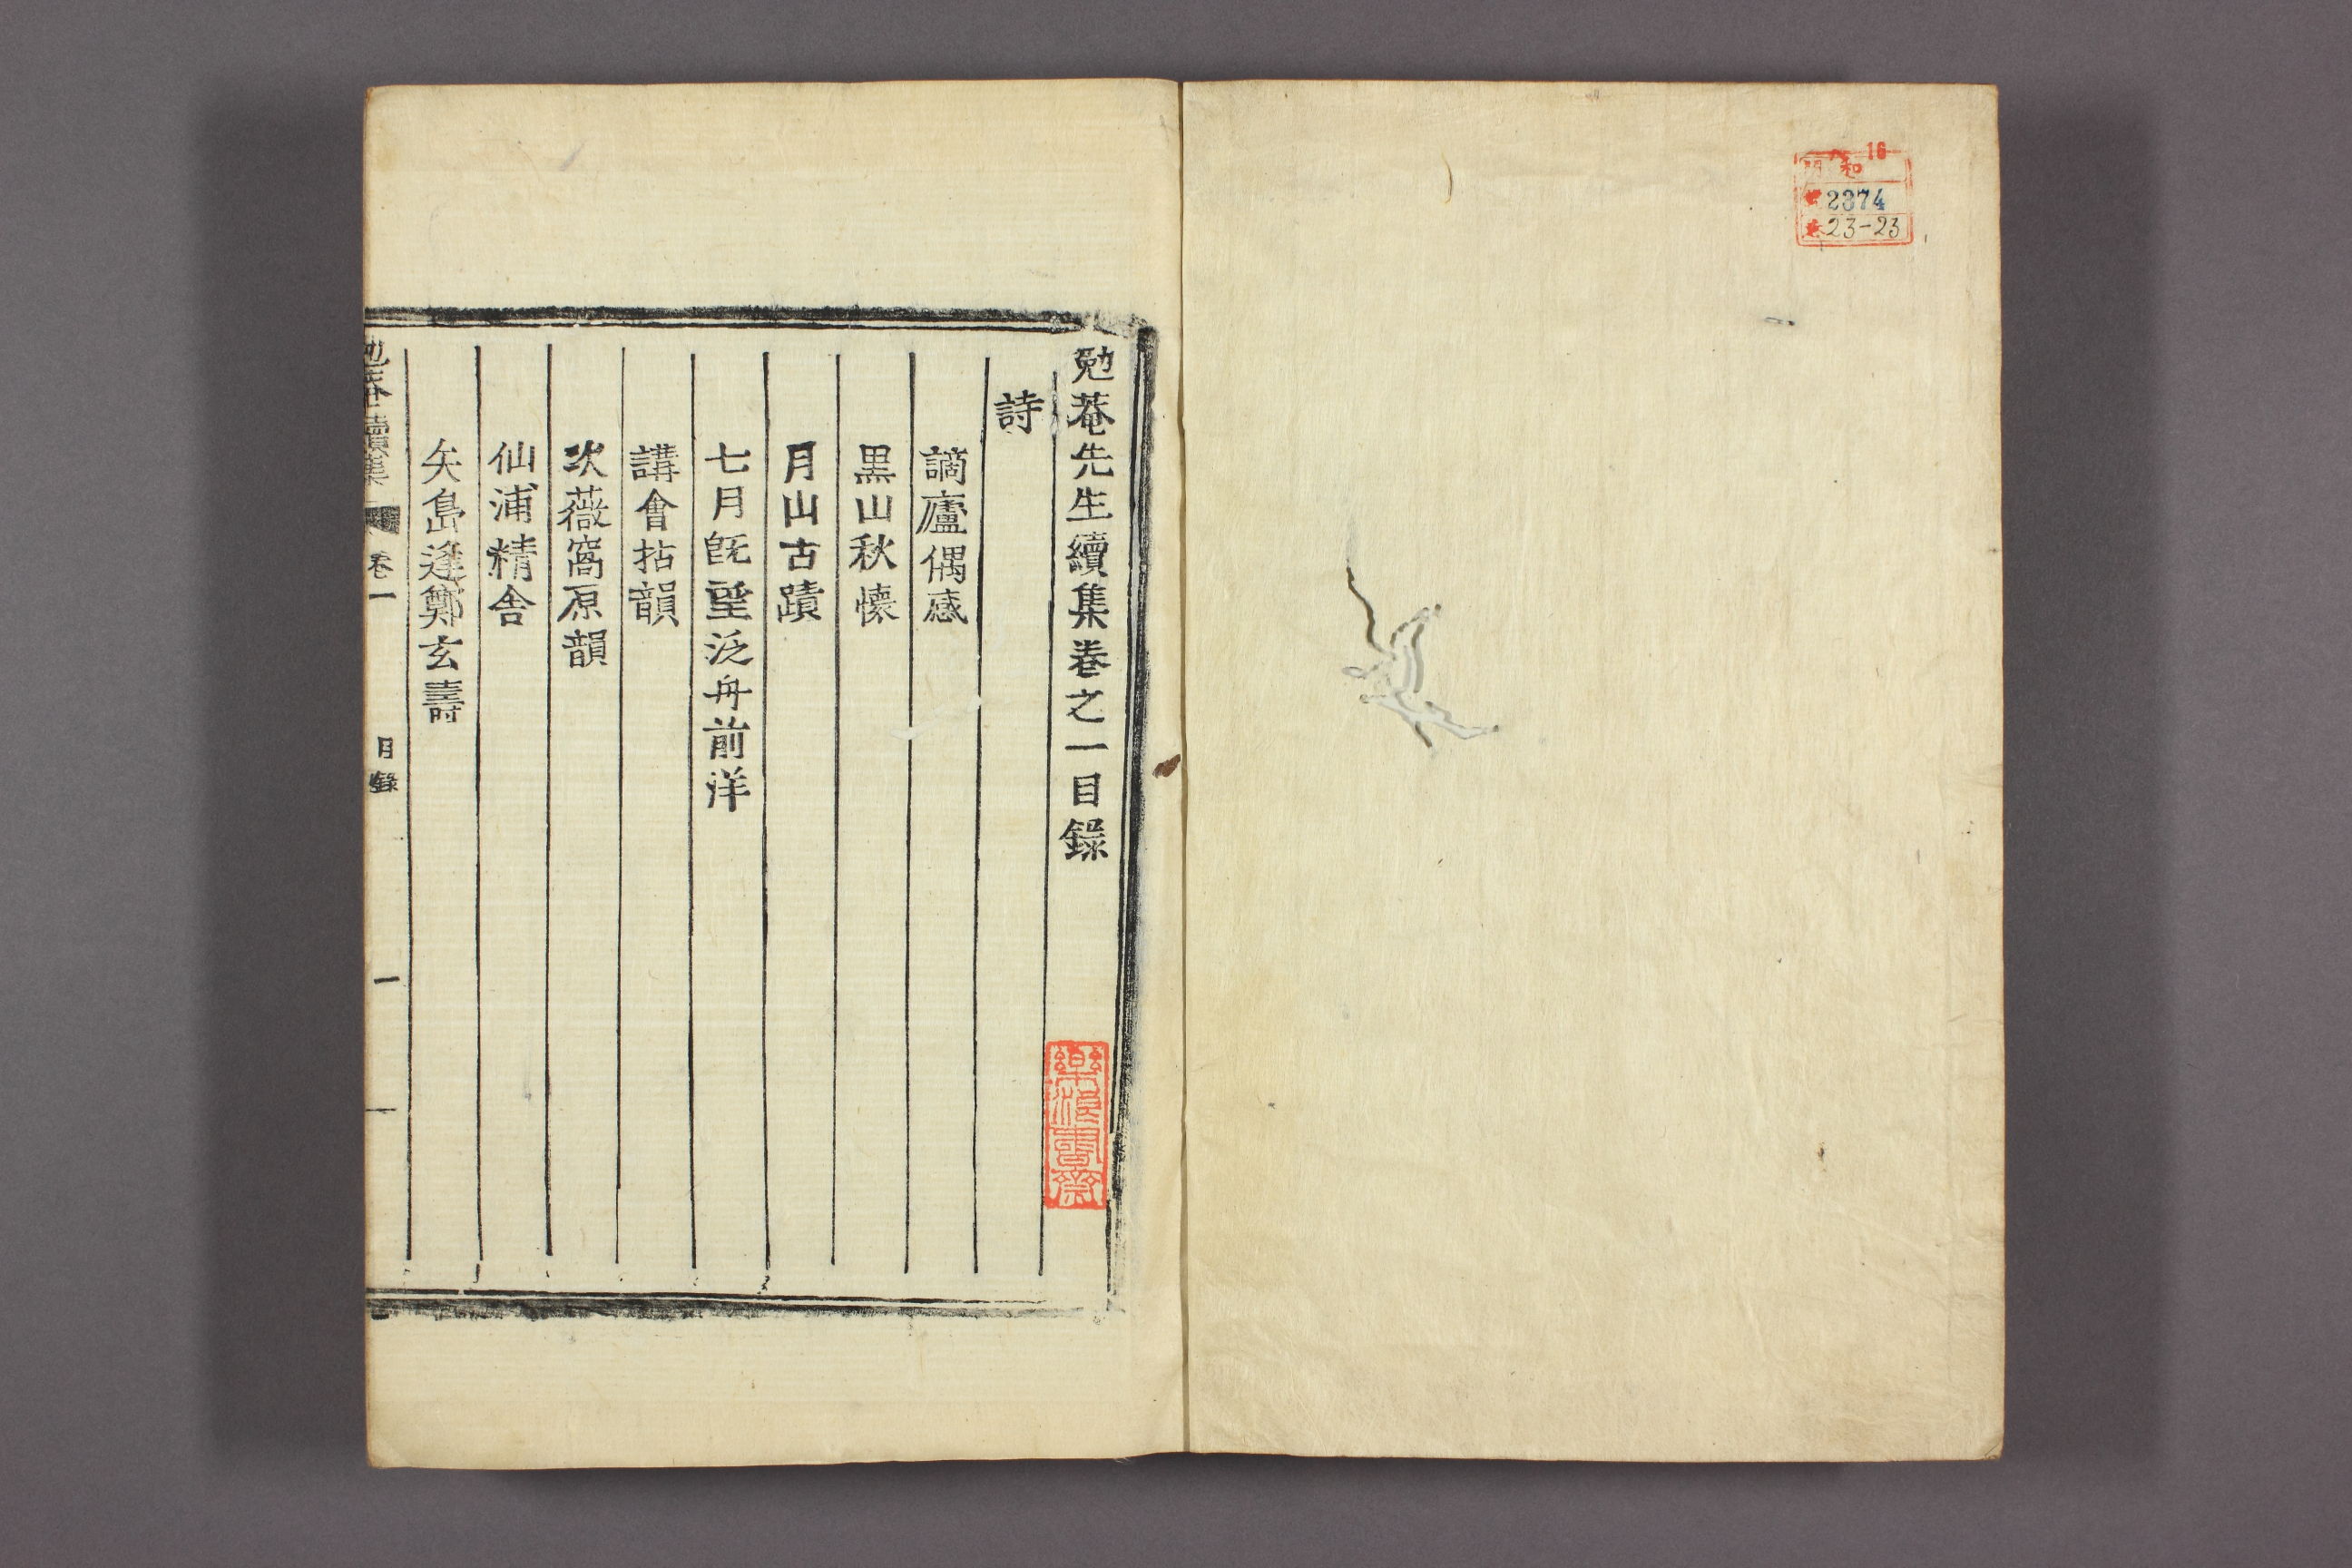 16
和
2374
23-23
勉菴先生續集卷之一目錄
詩
謫廬偶感
黑山秋懷
月山古蹟
七月旣望泛舟前洋
講會拈韻
次薇窩原韻
仙浦精舍
矢島逢鄭玄壽
勉菴續集
卷一
目錄
一